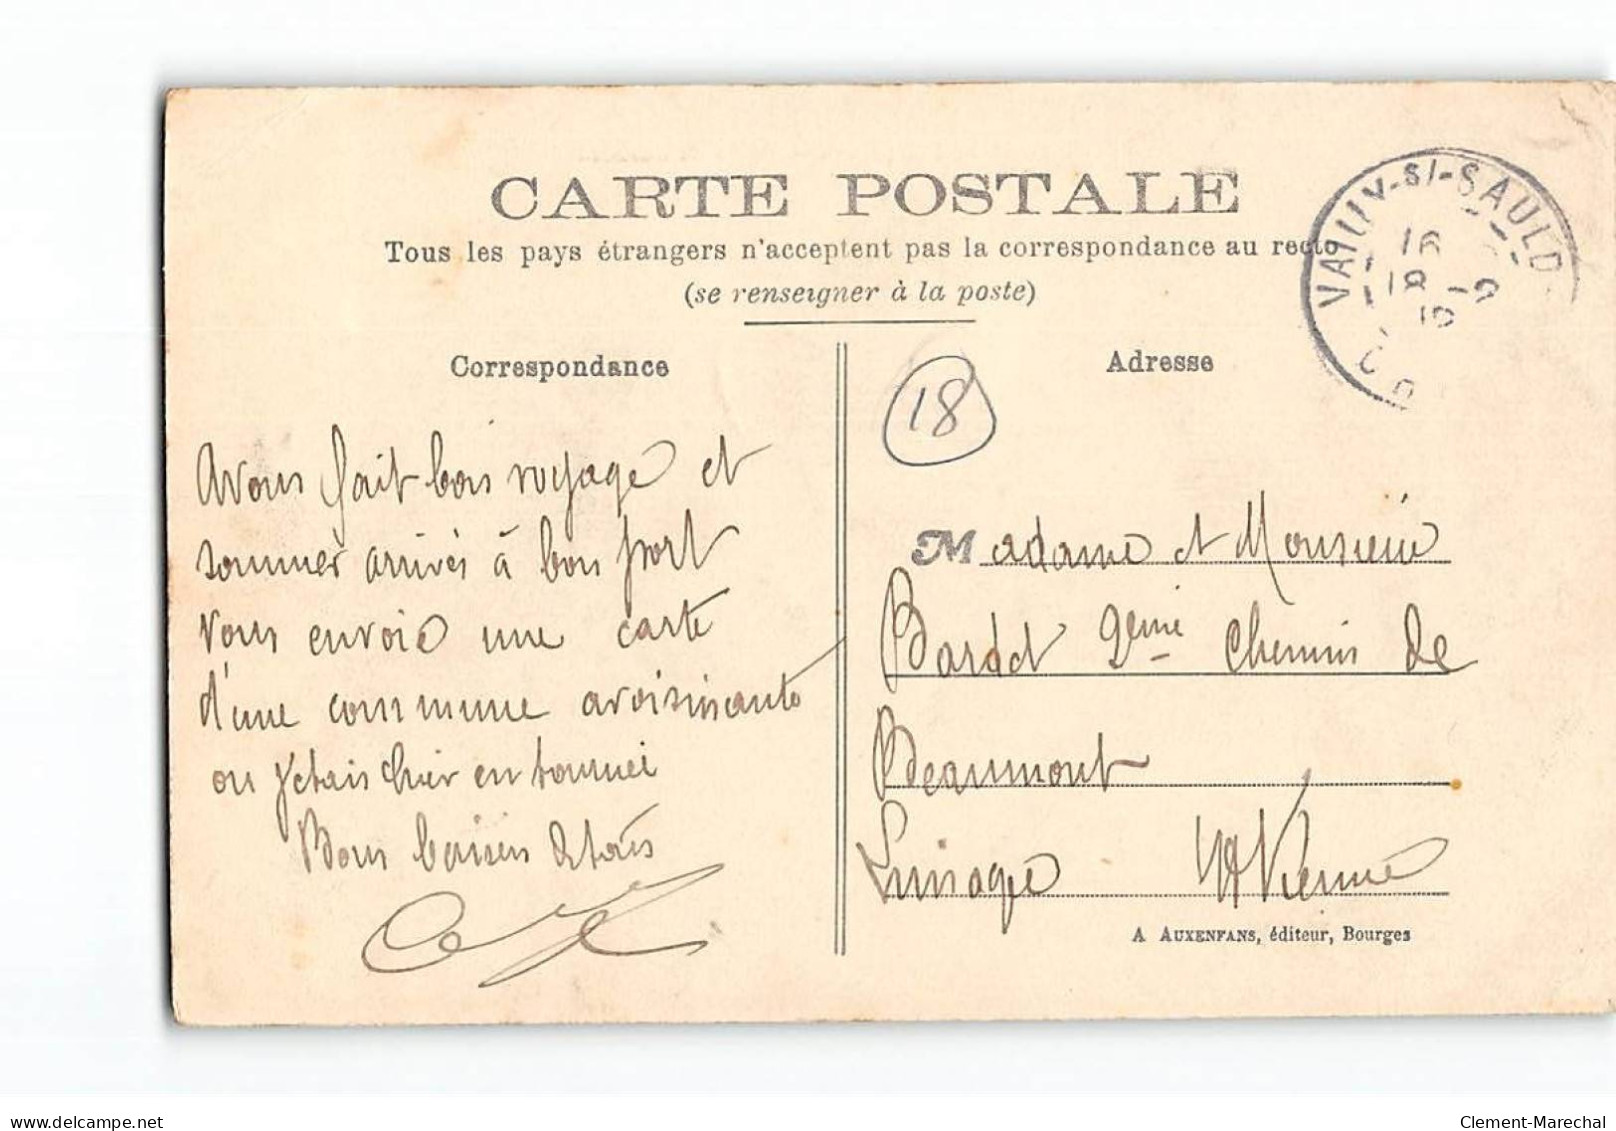 CARTE POSTALE
Tous les pays étrangers n'acceptent pas la correspondance au recto
(se renseigner à la poste)
VAILLY-S/-SAULD
16
18 -9
Correspondance
Adresse
18
Avons fait bon voyage et
sommes arrivés à bon port
Vous envoie une carte
d'une commune avoisinante
ou j'etais hier en tournei
Bons baisers à tous
Madame et Monsieur
Bardet 2eme Chemin de
Beaumont
Limoges Hte Vienne
A AUXENFANS, éditeur, Bourges
delcampe.net
Clement-Marechal